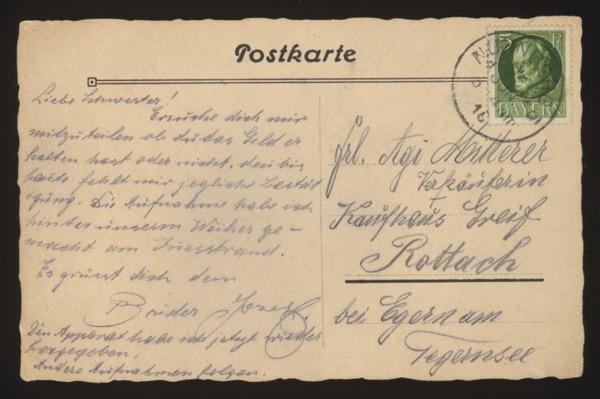 Postkarte
Liebe Schwester!
Ersuche dich mir
mitzuteilen ob du das Geld er
halten hast oder nicht, den bis
heute fehlt mir jegliche Bestät
igung. Die Aufnahme habe ich
hinter unserm Weiher ge-
macht am
Es grüsst dich dein
Bruder Josef.
Den Apparat habe ich jetzt wieder
hergegeben.
Andere Aufnahmen folgen.
5 Pf
BAYERN
Frl. Agi Mitterer
Verkäuferin
Kaufhaus Greif
Rottach
bei Egern am
Tegernsee